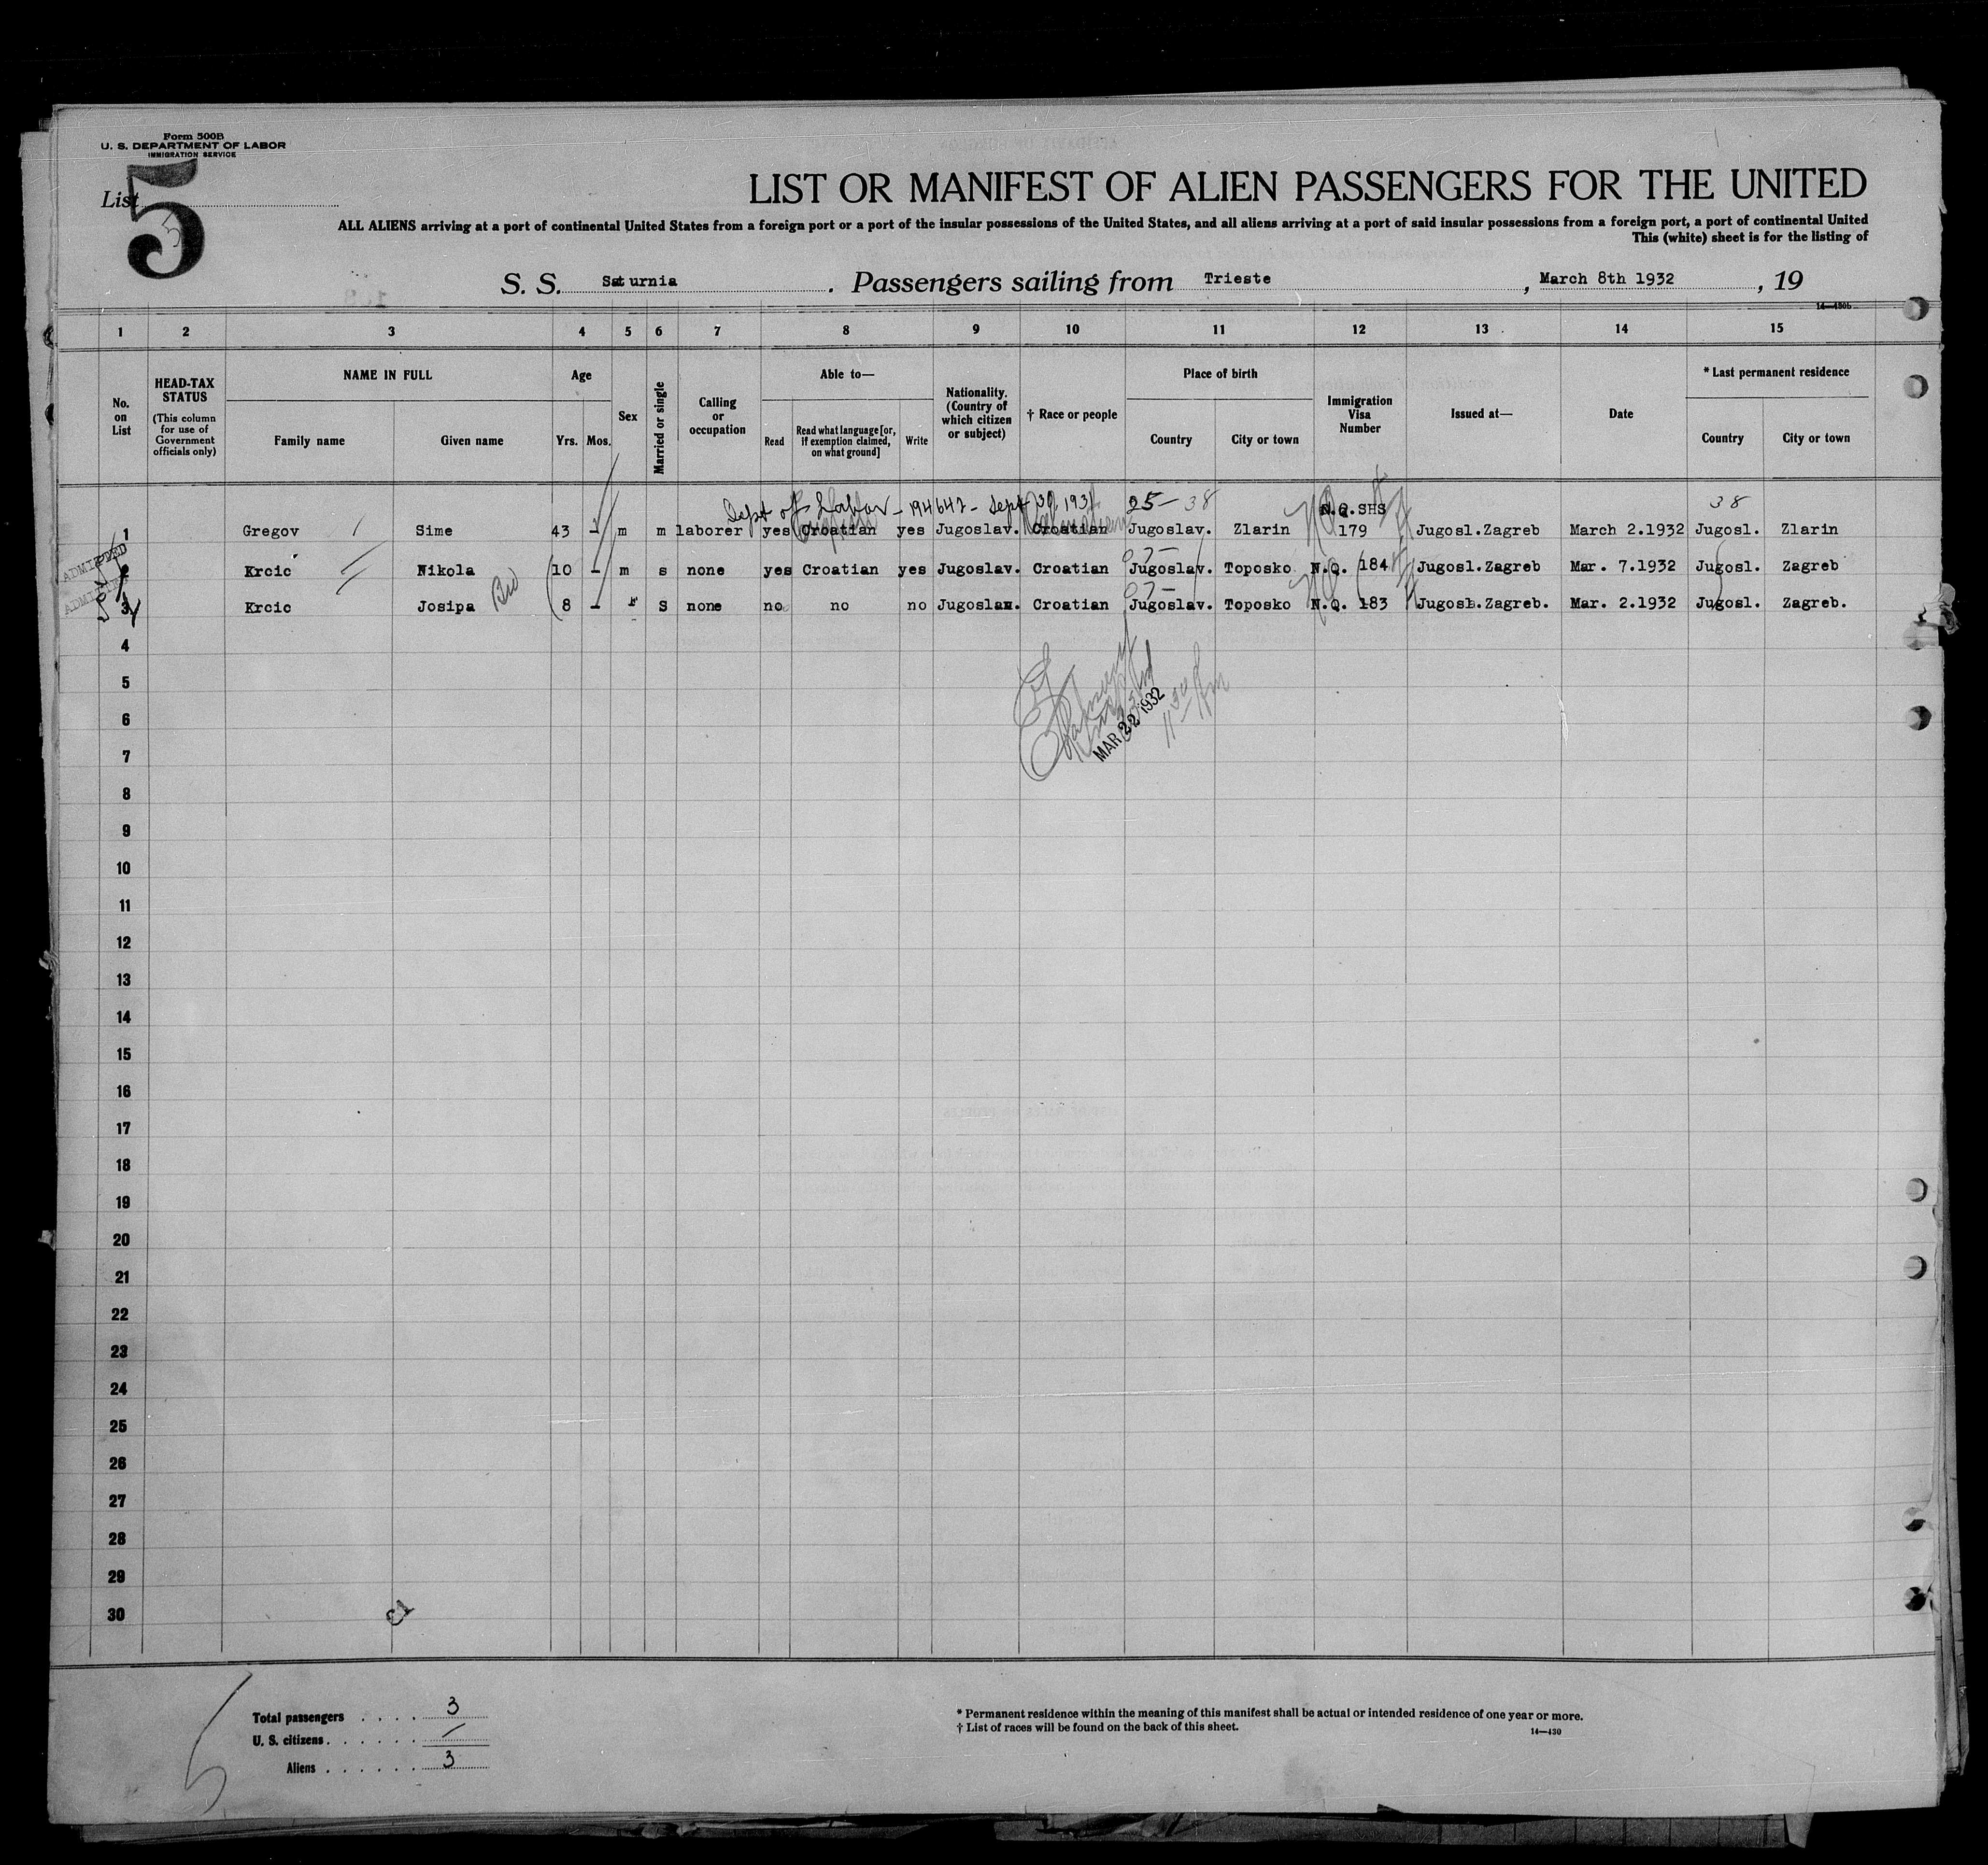 Form 500B
U. S. DEPARTMENT OF LABOR
IMMIGRATION SERVICE
List
5
5
LIST OR MANIFEST OF ALIEN PASSENGERS FOR THE UNITED
ALL ALIENS arriving at a port of continental United States from a foreign port or a port of the insular possessions of the United States, and all aliens arriving at a port of said insular possessions from a foreign port, a port of continental United
This (white) sheet is for the listing of
S. S. Saturnia. Passengers sailing from Trieste, March 8th 1932, 19
14—430b
1 2 3 4 5 6 7 8 9 10 11 12 13 14 15
No. on List
HEAD-TAX STATUS (This column for use of Government officials only)
NAME IN FULL
Family name Given name
Age
Yrs. Mos.
Sex
Married or single
Calling or occupation
Able to—
Read Read what language [or, if exemption claimed, on what ground] Write
Nationality. (Country of which citizen or subject)
† Race or people
Place of birth
Country City or town
Immigration Visa Number
Issued at—
Date
* Last permanent residence
Country City or town
Dept of Labor - 194647 - Sept 30, 1931 25- 38 N.Q.SHS 38
1 Gregov Sime 43 - m m laborer yes Croatian yes Jugoslav. Croatian Jugoslav. Zlarin 179 Jugosl.Zagreb March 2.1932 Jugosl. Zlarin
ADMITTED
2 Krcic Nikola 10 - m s none yes Croatian yes Jugoslav. Croatian Jugoslav. Toposko N.Q. 184 Jugosl.Zagreb Mar. 7.1932 Jugosl. Zagreb
ADMITTED
3 Krcic Josipa 8 - f S none no no no Jugoslav. Croatian Jugoslav. Toposko N.Q. 183 Jugosl.Zagreb. Mar. 2.1932 Jugosl. Zagreb.
4
5
6
MAR 22 1932
7
8
9
10
11
12
13
14
15
16
17
18
19
20
21
22
23
24
25
26
27
28
29
30
Total passengers . . . . 3
U. S. citizens . . . . . . —
Aliens . . . . . . 3
* Permanent residence within the meaning of this manifest shall be actual or intended residence of one year or more.
† List of races will be found on the back of this sheet.
14—430